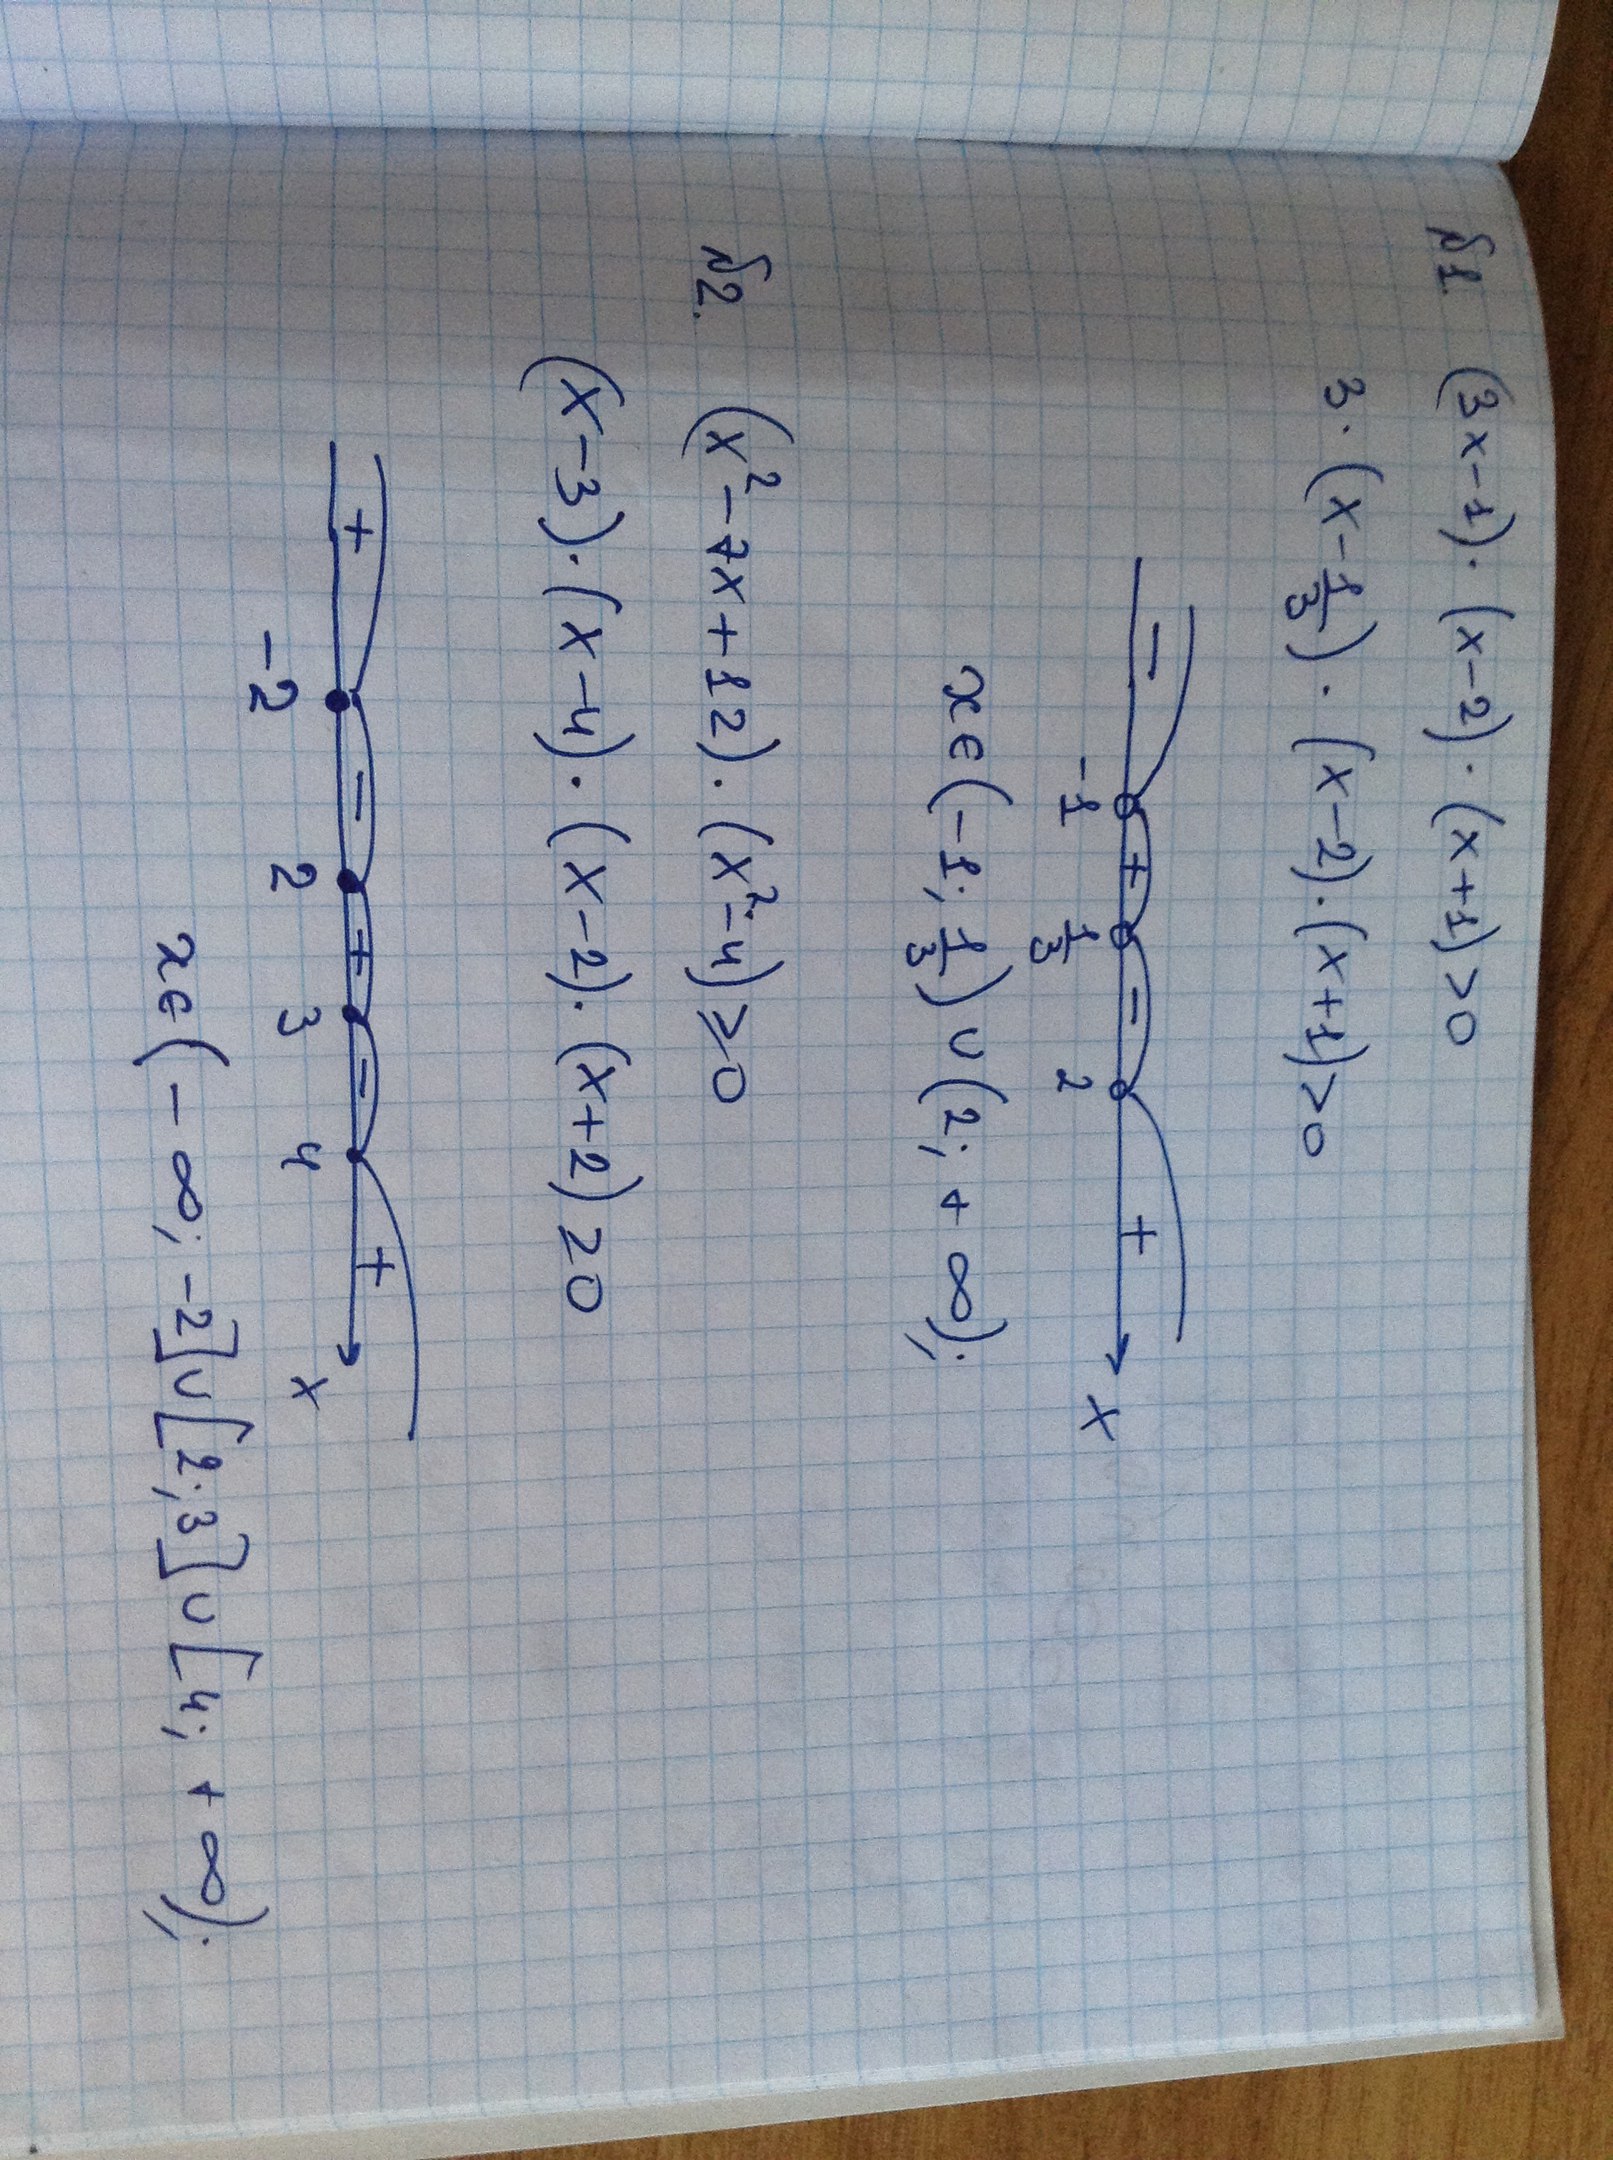 №1. (3x-1)·(x-2)·(x+1)>0
3·(x-1/3)·(x-2)·(x+1)>0
- + - +
-1 1/3 2 x
x∈(-1; 1/3)∪(2; +∞);.
№2. (x²-7x+12)·(x²-4)≥0
(x-3)·(x-4)·(x-2)·(x+2)≥0
+ - + - +
-2 2 3 4 x
x∈(-∞; -2]∪[2; 3]∪[4; +∞);.